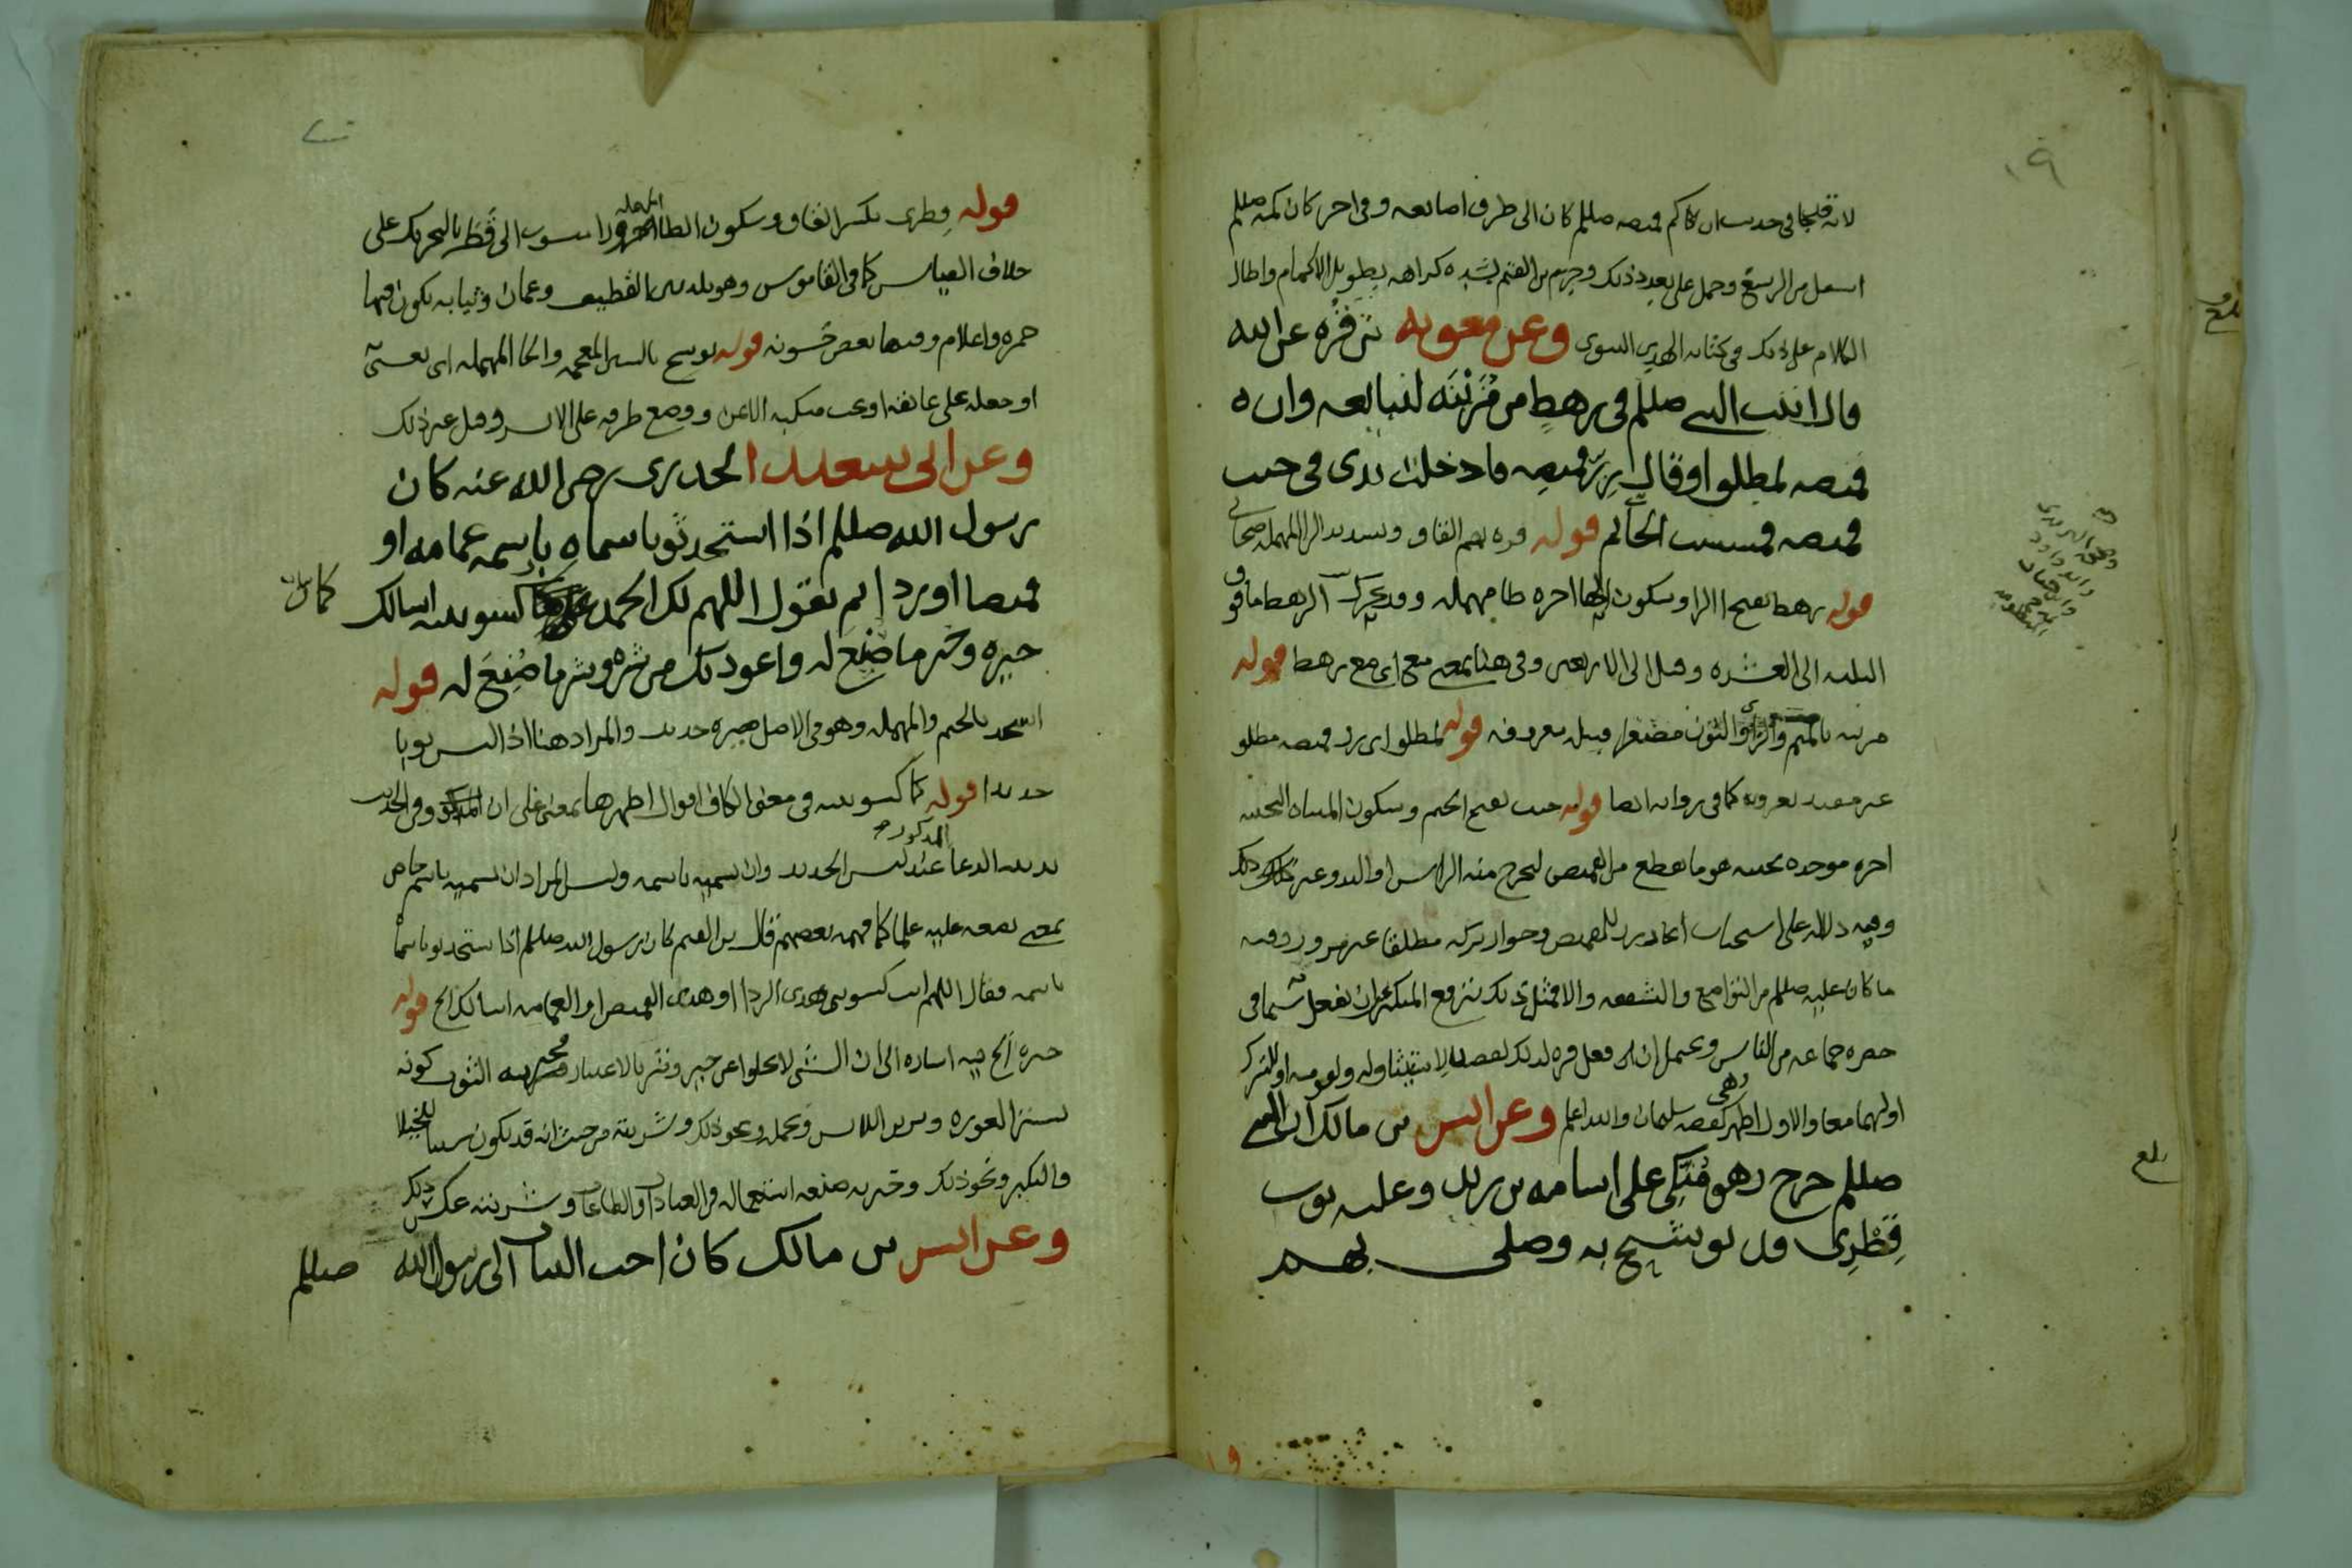 لانه قد جا في حديث ان كم قميصه صللم كان الى طرف اصابعه وفي اخر كان كمه صللم
اسفل من الرسغ وحمل على تعدد ذلك وجزم بن القيم بشده كراهه تطويل الاكمام واطال
الكلام على ذلك في كتابه الهدي النبوي وعن معويه بن قره عن ابيه
قال اتيت النبي صللم في رهط من مزينه لنبايعه وان
قميصه لمطلو او قال زر قميصه فادخلت يدي في جيب
قميصه فمسست الخاتم قوله قره بضم القاف وتشديد الرا المهمله صحابي
قوله رهط بفتح الرا وسكون الها اخره طا مهمله وقد تحرك الرهط ما فوق
الثلثه الى العشره وقيل الى الاربعين وفي هنا بمعنى مع اي مع رهط قوله
مزينه بالميم والزاي والنون مصغرا قبيله معروفه قوله لمطلو اي زر قميصه مطلو
غير مقيد بعروه كما في روايه ايضا قوله جيب بفتح الجيم وسكون المثناه التحتيه
اخره موحده تحتيه هو ما يقطع من القميص ليخرج منه الراس او اليد وغير ذلك
وفيه دلاله على استحباب اتخاذ زر للقميص وجواز تركه مطلقا غير مزرور وفيه
ما كان عليه صللم من التواضع والشفقه
حضره جماعه من الناس ويحتمل ان
اولهما معا والاول اظهر لقصه سلمان والله اعلم وعن انس بن مالك ان النبي
صللم خرج وهو متكي على اسامه بن زيد وعليه ثوب
قطري قد توشح به وصلى بهم
بلغ
قوله قطري بكسر القاف وسكون الطا المهمله را منسوب الى قطر بالتحريك على
خلاف القياس كما في القاموس وهو بلد بين القطيف وعمان وثيابه يكون فيها
حمره واعلام وفيها بعض خشونه قوله توشح بالشين المعجمه والحا المهمله اي تغشى
او جعله على عاتقه او تحت منكبه الايمن ووضع طرفه على الايسر وقيل غير ذلك
وعن ابي سعيد الخدري رضي الله عنه كان
رسول الله صللم اذا استجد ثوبا سماه باسمه عمامه او
قميصا او ردا ثم يقول اللهم لك الحمد كما كسوتنيه اسالك
خيره وخير ما صنع له واعوذ بك من شره وشر ما صنع له قوله
استجد بالجيم والمهمله وهو في الاصل صيره جديد والمراد هنا اذا لبس ثوبا
جديدا قوله كما كسوتنيه في معنى الكاف اقوال اظهرها بمعنى على ان المذكوره وفي الحديث
نديه الدعا عند لبس الجديد وان تسميه باسمه وليس المراد ان تسميه باسم خاص
بمعنى يضعه عليه علما كما فهمه بعضهم قال بن القيم كان رسول الله صللم اذا استجد ثوبا سماه
باسمه فقال اللهم انت كسوتني هذي الردا او هذي القميص او العمامه اسالك الخ قوله
خيره الخ فيه اشاره الى ان الشي لا يخلوا عن خير وشر بالاعتبار فخيريه الثوب كونه
يستر العوره ويزين اللابس ويجمله ونحو ذلك وشريته من حيث انه قد يكون سببا للخيلا
والتكبر ونحو ذلك وخيريه صنعه استعماله في العبادات والطاعات وشريته عكس ذلك
وعن انس بن مالك كان احب الثياب الى رسول الله صللم